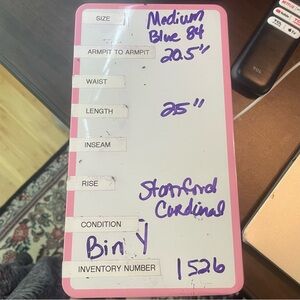 SIZE Medium
Blue 84
ARMPIT TO ARMPIT 20.5"
WAIST
LENGTH 25"
INSEAM
RISE Stanford
Cardinal
CONDITION
Bin Y
INVENTORY NUMBER 1526
TCL